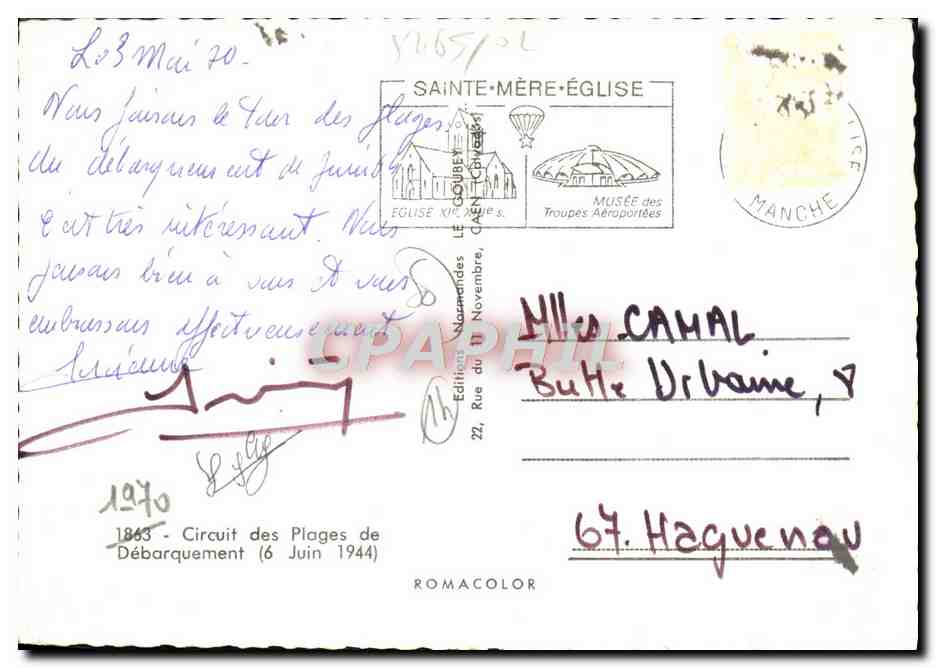 Le 3 Mai 70.
Nous faisons le tour des plages
du débarquement de Juin 44
C'est très intéressant. Nous
pensons bien à vous et vous
embrassons affectueusement
SAINTE•MÈRE•ÉGLISE
EGLISE XIe XIIIe s.
MUSÉE des
Troupes Aéroportées
MANCHE
Editions Normandes LE GOUBEY
22, Rue du 11 Novembre, CAEN (Calvados)
80
1h
Mlles CAMAL
Butte Urbaine, 8
67. Haguenau
1970
1863 - Circuit des Plages de
Débarquement (6 Juin 1944)
ROMACOLOR
CPAPHIL